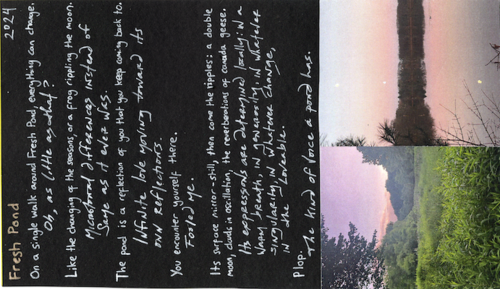 Fresh Pond 2024
On a single walk around Fresh Pond, everything can change.
Oh, as little as that?
Like the changing of the seasons, or a frog ripping the moon.
Microtonal differences instead of
Same as it ever was.
The pond is a reflection of you that you keep coming back to.
Infinite love moving toward its
own reflections.
You encounter yourself there.
Fooled me.
Its surface mirror-still, then come the ripples: a double
moon, clouds in oscillation, the reverberation of canada geese.
Its expressions are determined locally: in a
warm breath, in generosity, in whatever
singularity, in whatever change,
in the loveable.
Plop.
The kind of voice a pond has.